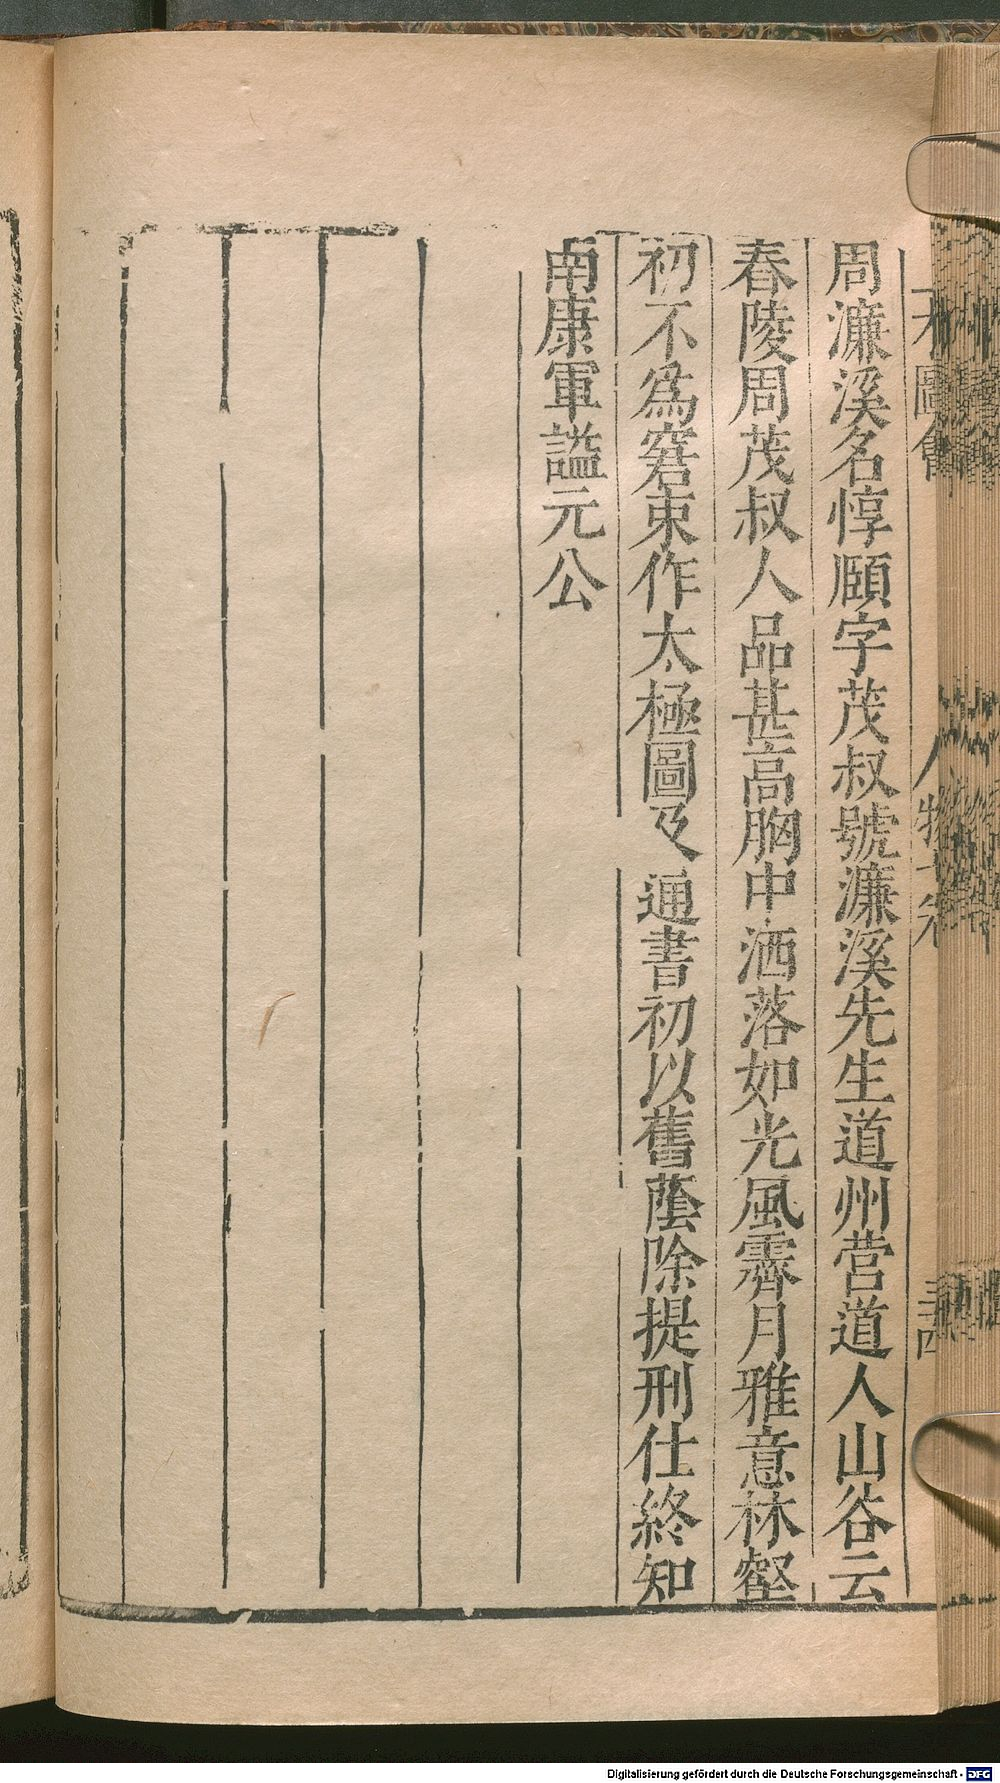 周濂溪名惇頤字茂叔號濂溪先生道州營道人山谷云
舂陵周茂叔人品甚高胸中洒落如光風霽月雅意林壑
初不為窘束作太極圖及通書初以舊蔭除提刑仕終知
南康軍謚元公
圖會
人物
Digitalisierung gefördert durch die Deutsche Forschungsgemeinschaft - DFG